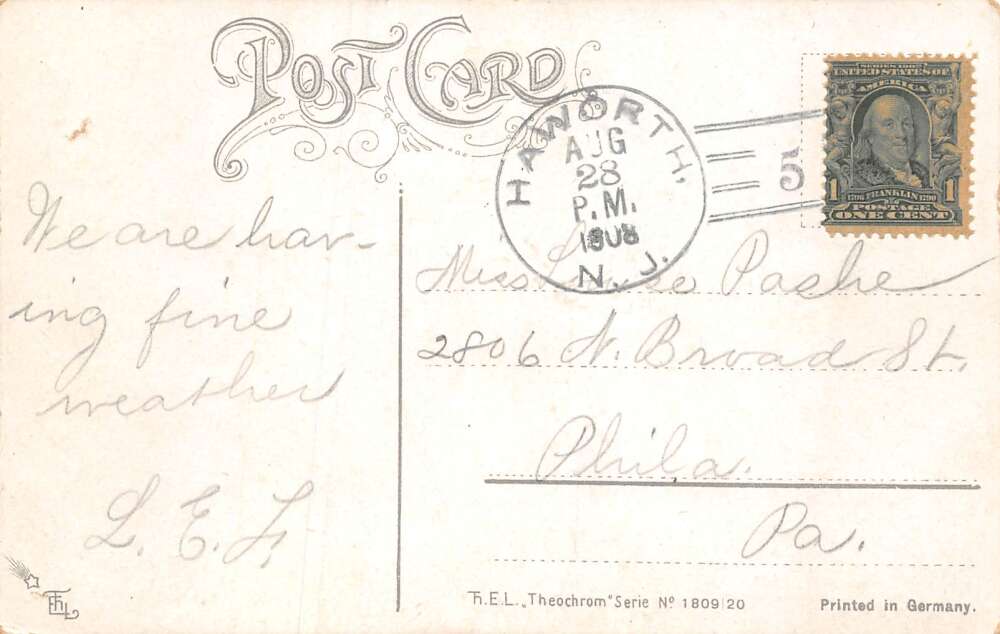 POST CARD
SERIES 1902
UNITED STATES OF
AMERICA
1 1706 FRANKLIN 1790 1
POSTAGE
ONE CENT
HAWORTH,
AUG
28
P.M.
1908
N. J.
5
We are hav-
ing fine
weather
L. E. F.
Miss Pashe
2806 N. Broad St.
Phila.
Pa.
Th.E.L. „Theochrom" Serie Nº 1809/20
Printed in Germany.